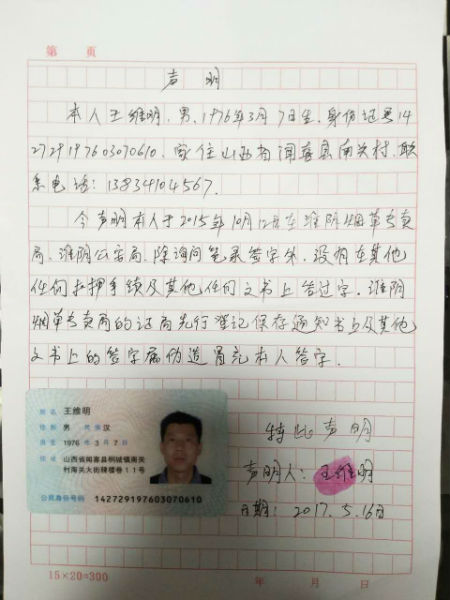 第 页
声 明
本人王维明,男,1976年3月7日生,身份证号14
2729197603070610,家住山西省闻喜县南关村,联
系电话:13834104567.
今声明本人于2015年10月12日在淮阴烟草专卖
局、淮阴公安局,除询问笔录签字外,没有在其他
任何扣押手续及其他任何文书上签过字.淮阴
烟草专卖局的证据先行登记保存通知书及其他
文书上的签字属伪造冒充本人签字.
姓名 王维明
性别 男 民族 汉
出生 1976 年 3 月 7 日
住址 山西省闻喜县桐城镇南关
村南关大街牌楼巷11号
公民身份号码 142729197603070610
特此声明
声明人:王维明
日期:2017.5.16日
15×20=300 年 月 日